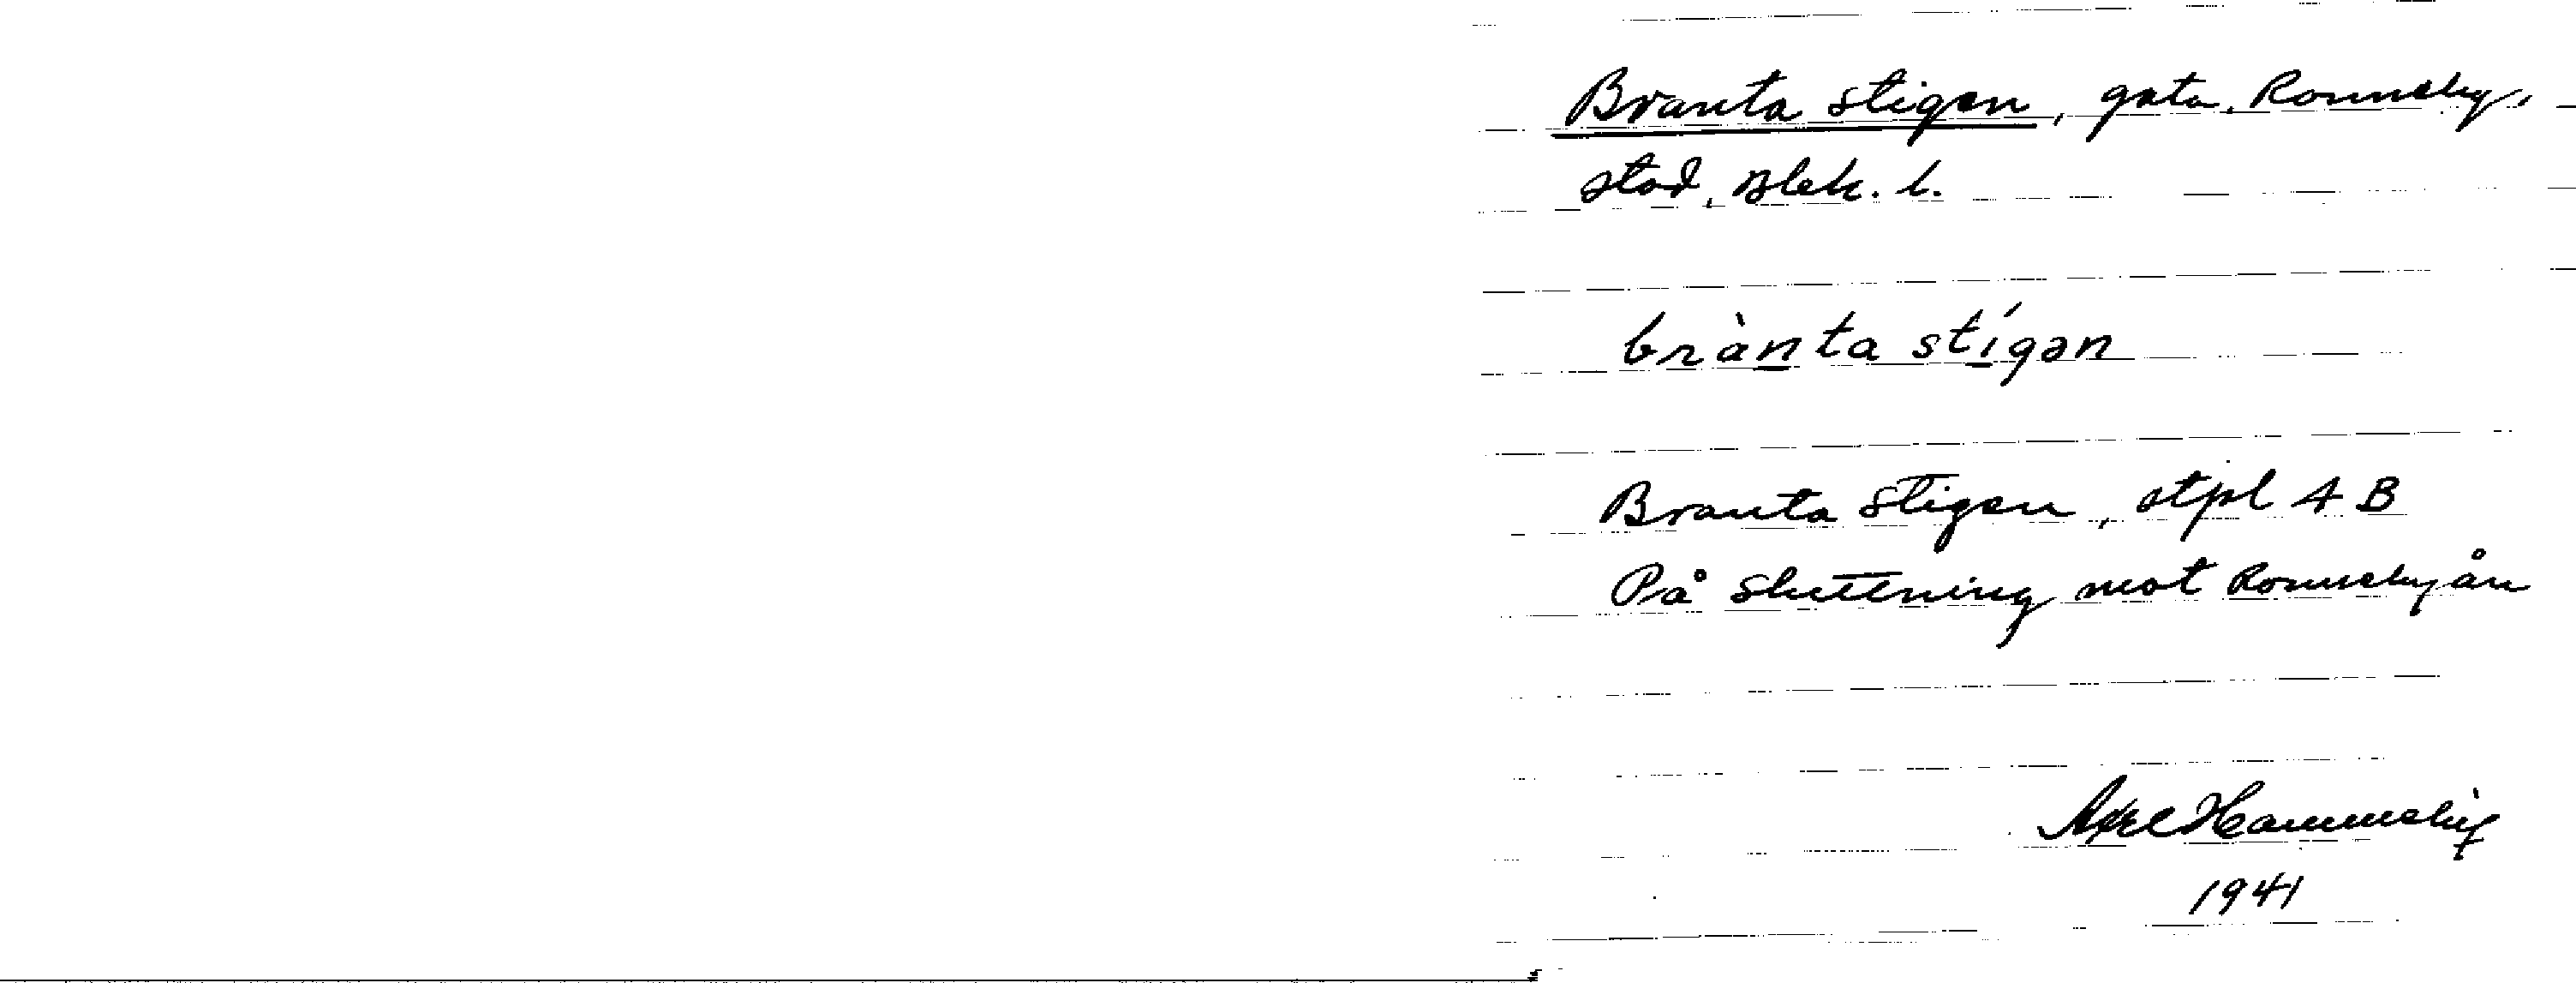 Branta stigen, gata, Ronneby,
stad, Blek. l.
brànta stígən
Branta stigen, stpl 4 B
På sluttning mot Ronnebyån
Axel Hammeby
1941